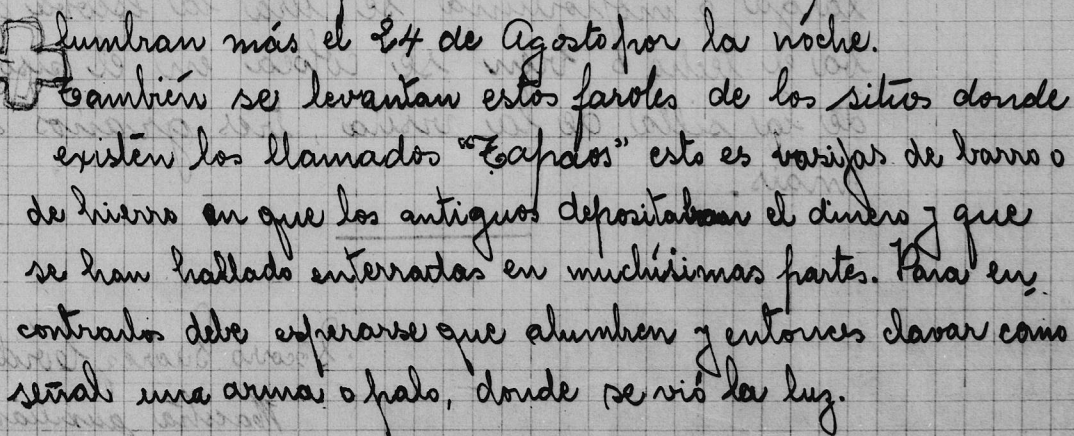 lumbran más el 24 de Agosto por la noche.
También se levantan estos faroles de los sitios donde
existen los llamados "Tapdos" esto es vasijas de barro o
de hierro en que los antiguos depositaban el dinero y que
se han hallado enterradas en muchísimas partes. Para en
contrarlos debe esperarse que alumbren y entonces clavar como
señal una arma o palo, donde se vió la luz.